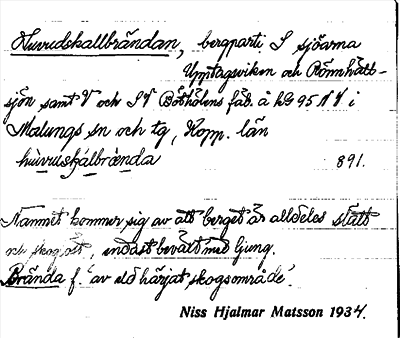 Huvudskallbrändan, bergparti S sjöarna
Upptagsviken och Rönnhätt-
sjön samt V och SV Böthölens fäb. å kb 95 NV i
Malungs sn och tg, Kopp. län
hùvuskálbrænda 891.
Namnet kommer sig av att berget är alldeles slätt
och skoglöst, endast beväxt med ljung.
Brända f. 'av eld härjat skogsområde'.
Niss Hjalmar Matsson 1934.